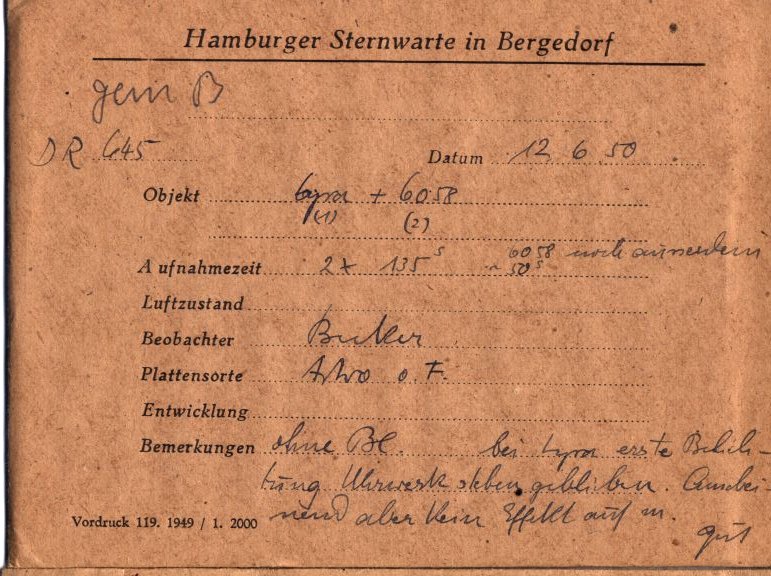 Hamburger Sternwarte in Bergedorf
gem B
DR 645
Datum 12 6 50
Objekt Lyra + 6058
(1) (2)
Aufnahmezeit 2 x 135 s 6058 noch
50 s
Luftzustand
Beobachter
Plattensorte Astro o. F.
Entwicklung
Bemerkungen ohne Bl. bei Lyra erste Belich-
tung Uhrwerk stehen geblieben. Anschei-
nend aber kein Effekt auf m.
gut
Vordruck 119. 1949 / 1. 2000